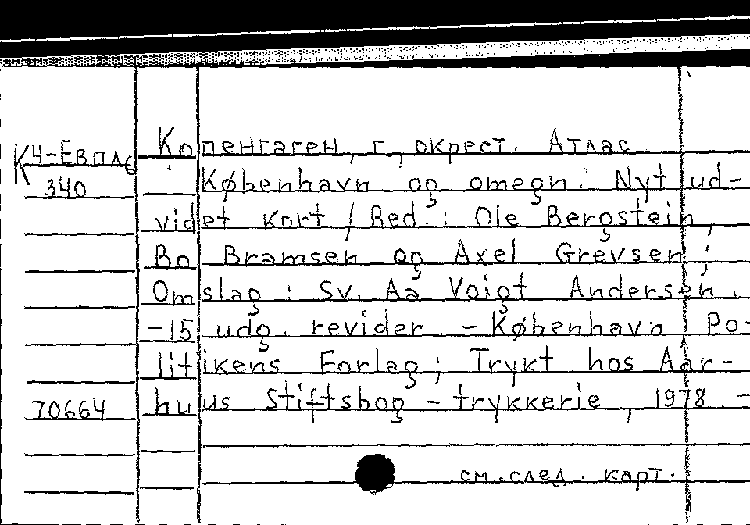 Копенгаген, г., окрест. Атлас.
К4-Евп
340
København og omegn: Nyt ud-
videt kort / Red.: Ole Bergstein,
Bo Bramsen og Axel Grevsen;
Omslag: Sv. Aa Voigt Andersen.
-15 udg. revider. - København: Po-
litikens Forlag; Trykt hos Aar-
huus Stiftsbog-trykkerie, 1978 -
70664
см. след. карт.